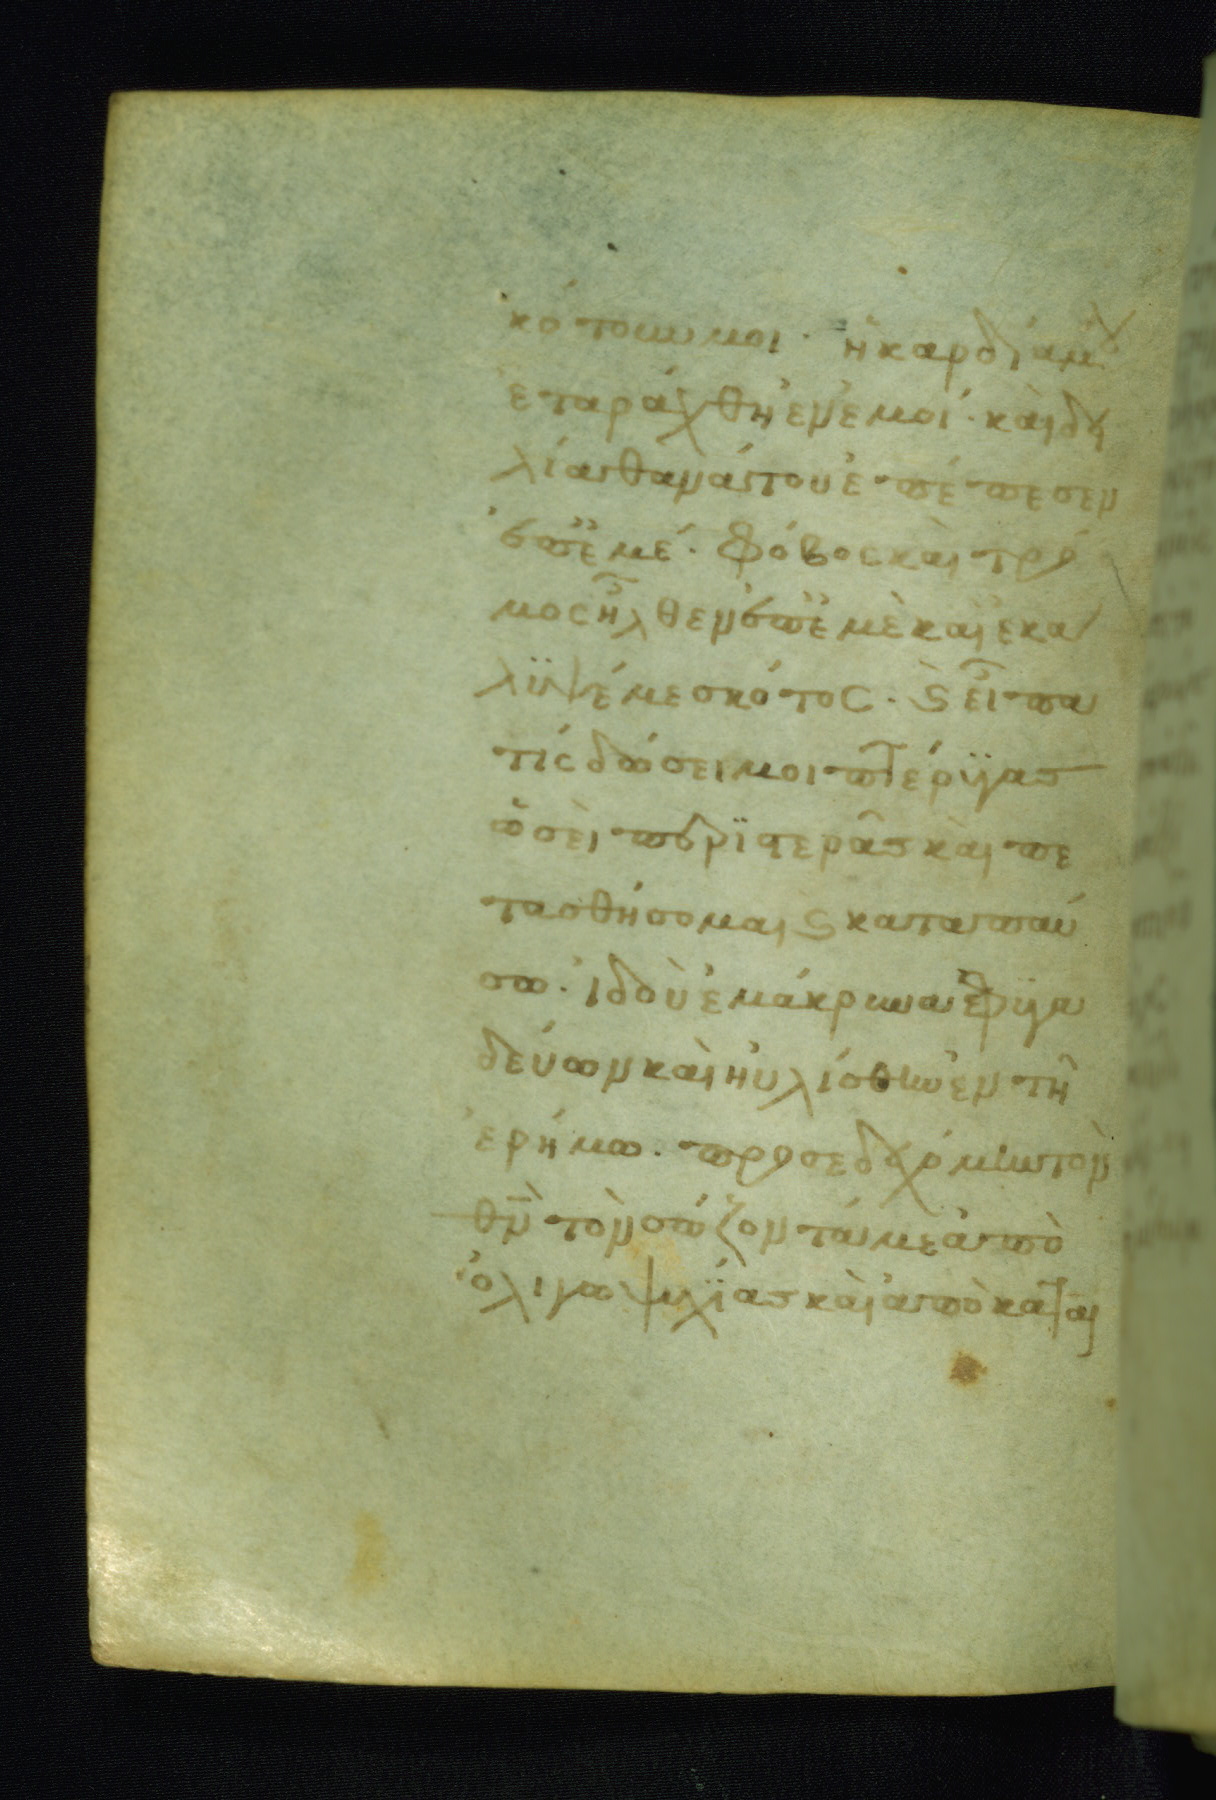 κότουν μοι· ἡ καρδία μου
ἐταράχθη ἐν ἐμοί· καὶ δει
λία θανάτου ἐπέπεσεν
ἐπ ἐμέ· φόβος καὶ τρό
μος ἦλθεν ἐπ ἐμὲ καὶ ἐκά
λϋψέ με σκότος· ϛ εἶπα
τίς δώσει μοι πτέρϋγας
ὡσεὶ περϊστερᾶς καὶ πε
τασθήσομαι ϛ καταπαύ
σω· ἰδοὺ ἐμάκρυνα φϋγα
δεύων καὶ ηὐλίσθην ἐν τῆ
ἐρήμω· προσεδεχόμην τὸν
θν τὸν σώζοντά με ἀπὸ
ὀλιγωψυχΐας καὶ ἀπὸ καται